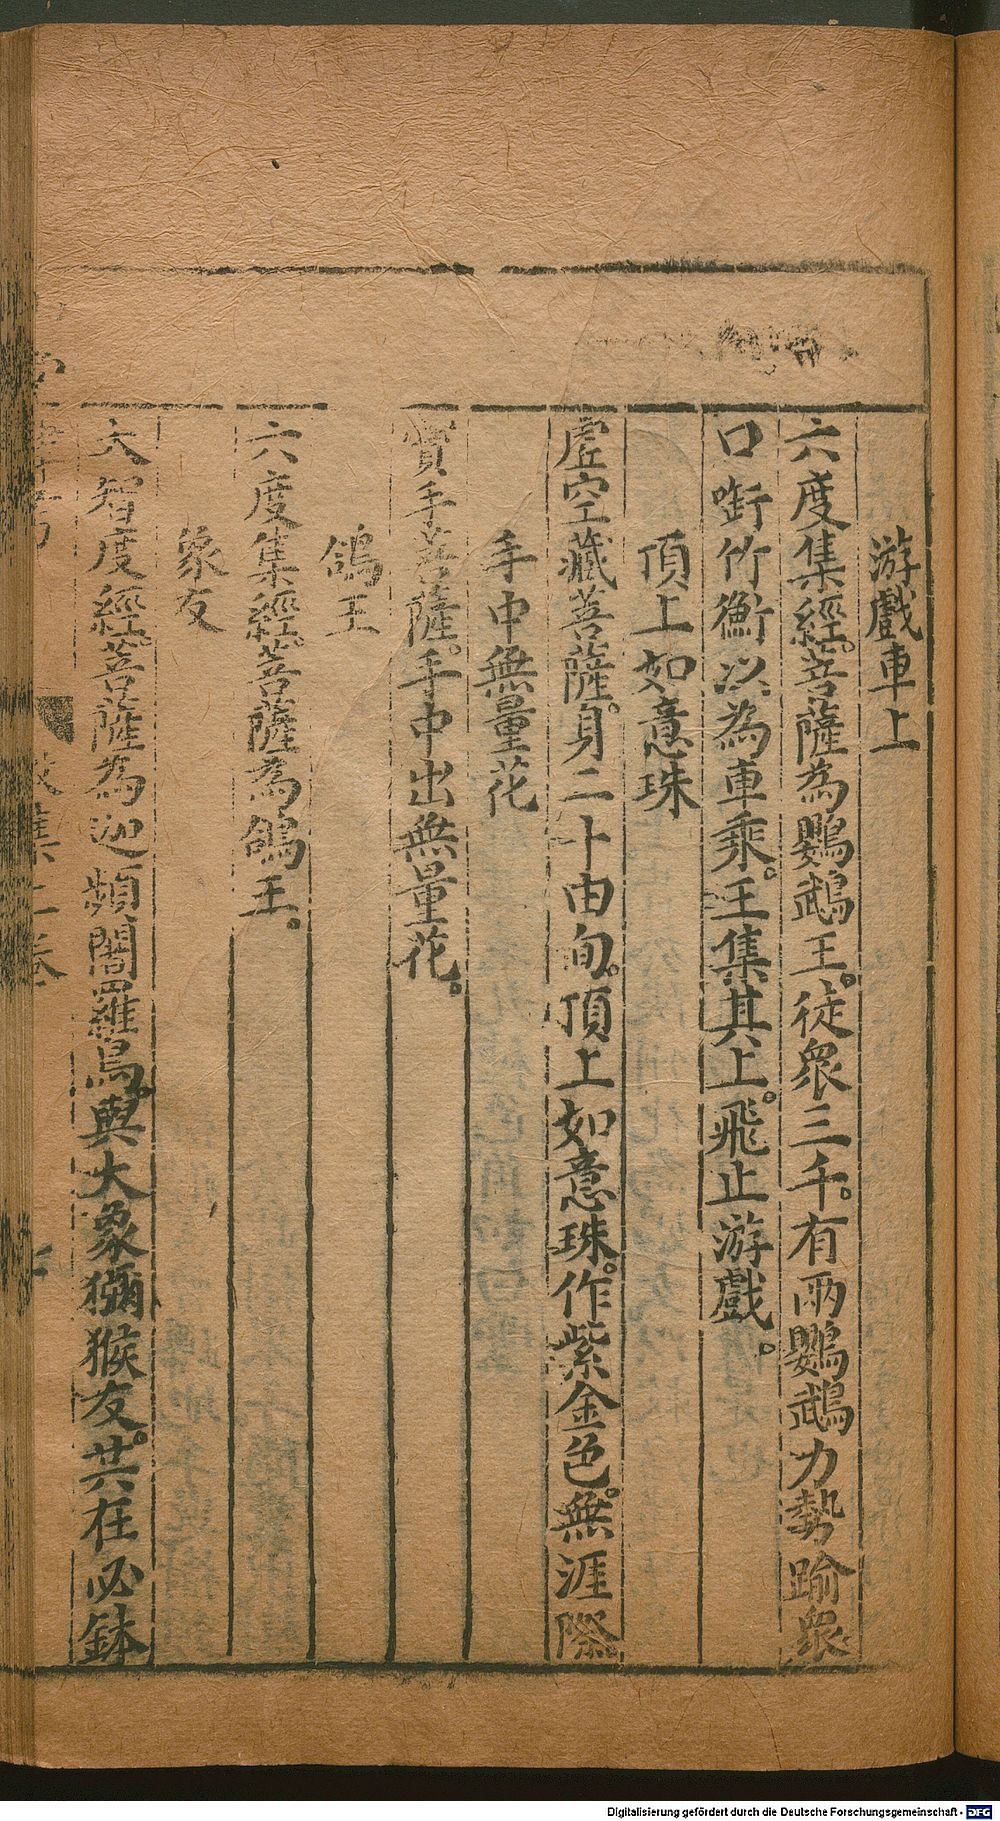 游戲車上
六度集經。菩薩為鸚鵡王。徒衆三千。有兩鸚鵡力勢踰衆
口銜竹衡以為車乘。王集其上。飛止游戲。
頂上如意珠
虛空藏菩薩。身二十由旬。頂上如意珠。作紫金色。無涯際
手中無量花
寶手菩薩。手中出無量花。
鴿王
六度集經。菩薩為鴿王。
象友
大智度經。菩薩為迦頻闍羅鳥。與大象獼猴友。共在必鉢
Digitalisierung gefördert durch die Deutsche Forschungsgemeinschaft - DFG